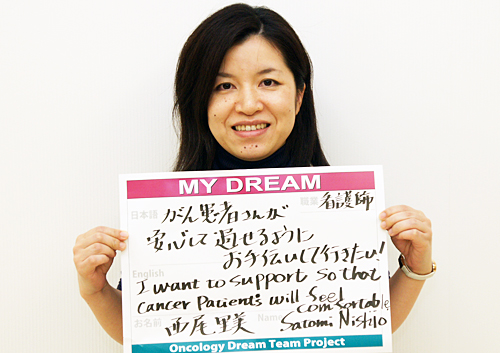 MY DREAM
日本語 がん患者さんが 職業 看護師
安心して過せるように
お手伝いして行きたい!
English
I want to support so that
cancer Patients will feel
comfortable
お名前 西尾里美 Name Satomi Nishio
Oncology Dream Team Project